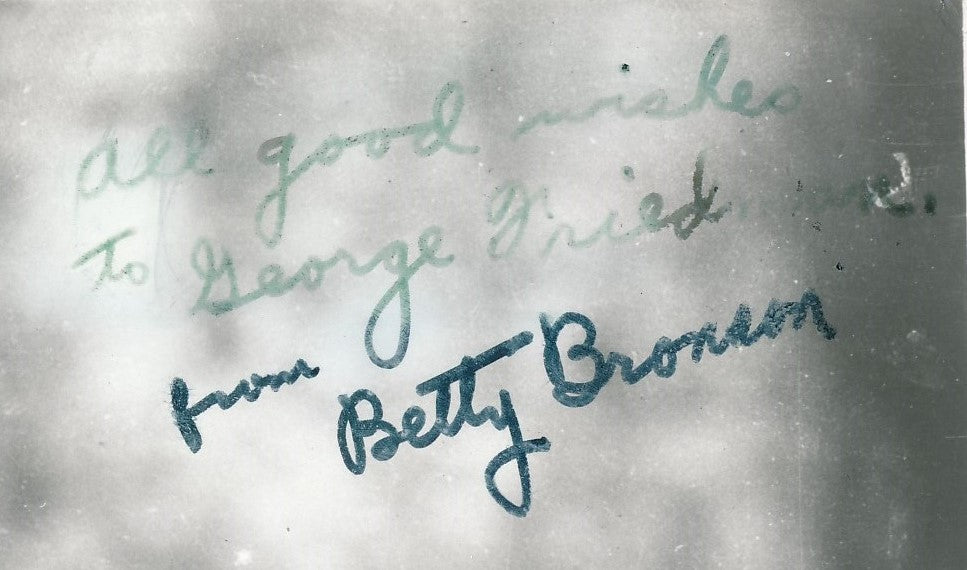 All good wishes
to George
from Betty Bronson